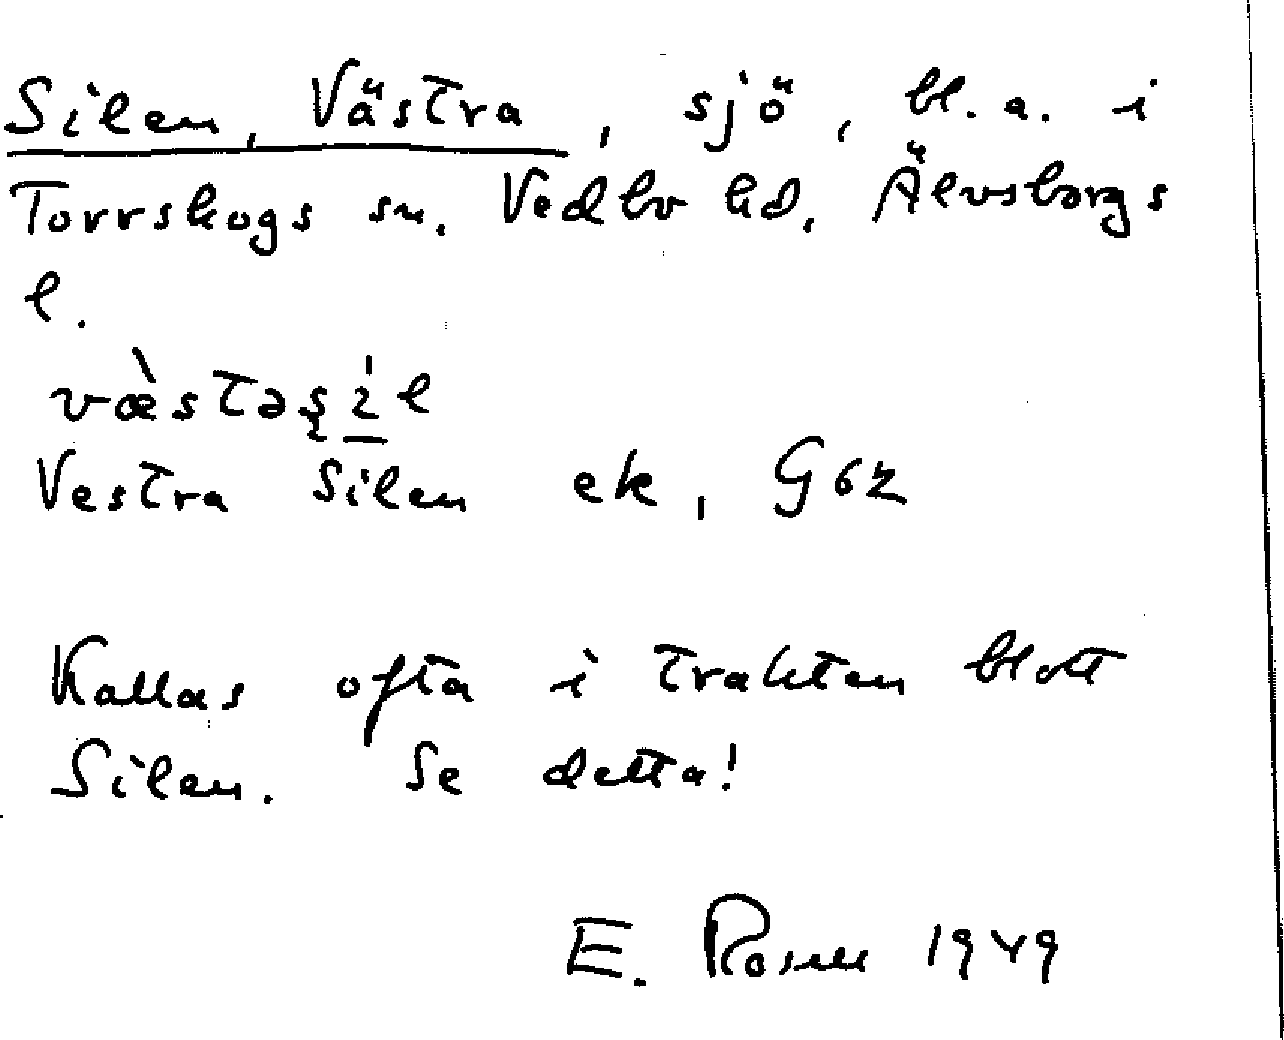 Silen, Västra, sjö, bl. a. i
Torrskogs sn. Vedbo hd. Älvsborgs
l.
væ̀stəṣí̲l
Vestra Silen ek, G62
Kallas ofta i trakten blott
Silen. Se detta!
E. Rosell 1949